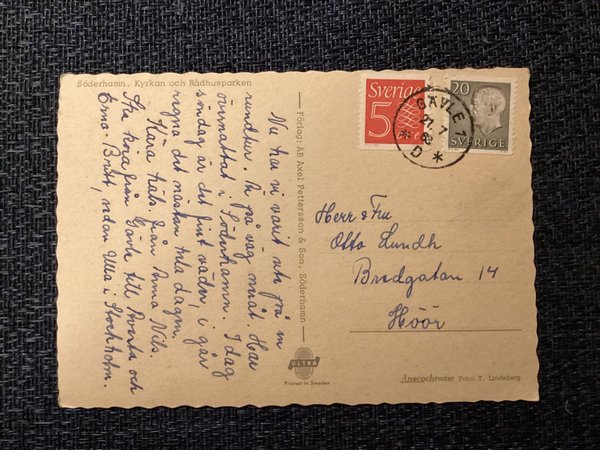 Söderhamn. Kyrkan och Rådhusparken
Nu har vi varit ute på en
rundtur. Är på väg nuåt. Har
övernattat i Söderhamn. I dag
söndag är det fint väder, i går
regna det nästan hela dagen.
Kära häls. från Anna Nils.
Ska köra från Gävle till Svarta och
Erna-Britt, sedan Ulla i Stockholm.
— Förlag: AB Axel Pettersson & Son, Söderhamn —
ULTRA
Printed in Sweden
Sverige
5
20
SVERIGE
GÄVLE 1
22 7
62
* D *
Herr & Fru
Otto Lundh
Bredgatan 14
Höör
Anscochrome Foto: T. Lindeberg